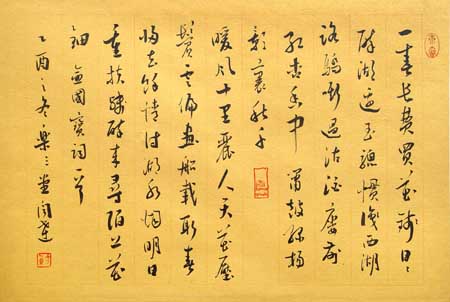 一春长费買花錢日々
醉湖邊玉驄慣識西湖
路驕嘶過沽酒樓前
紅杏香中簫鼓綠楊
影裏秋千
暖風十里麗人天花壓
鬢雲偏畫船載取春
歸去餘情付湖水烟明日
重扶殘醉來尋陌上花
鈿 俞國寶詞一首
乙酉之冬樂三堂